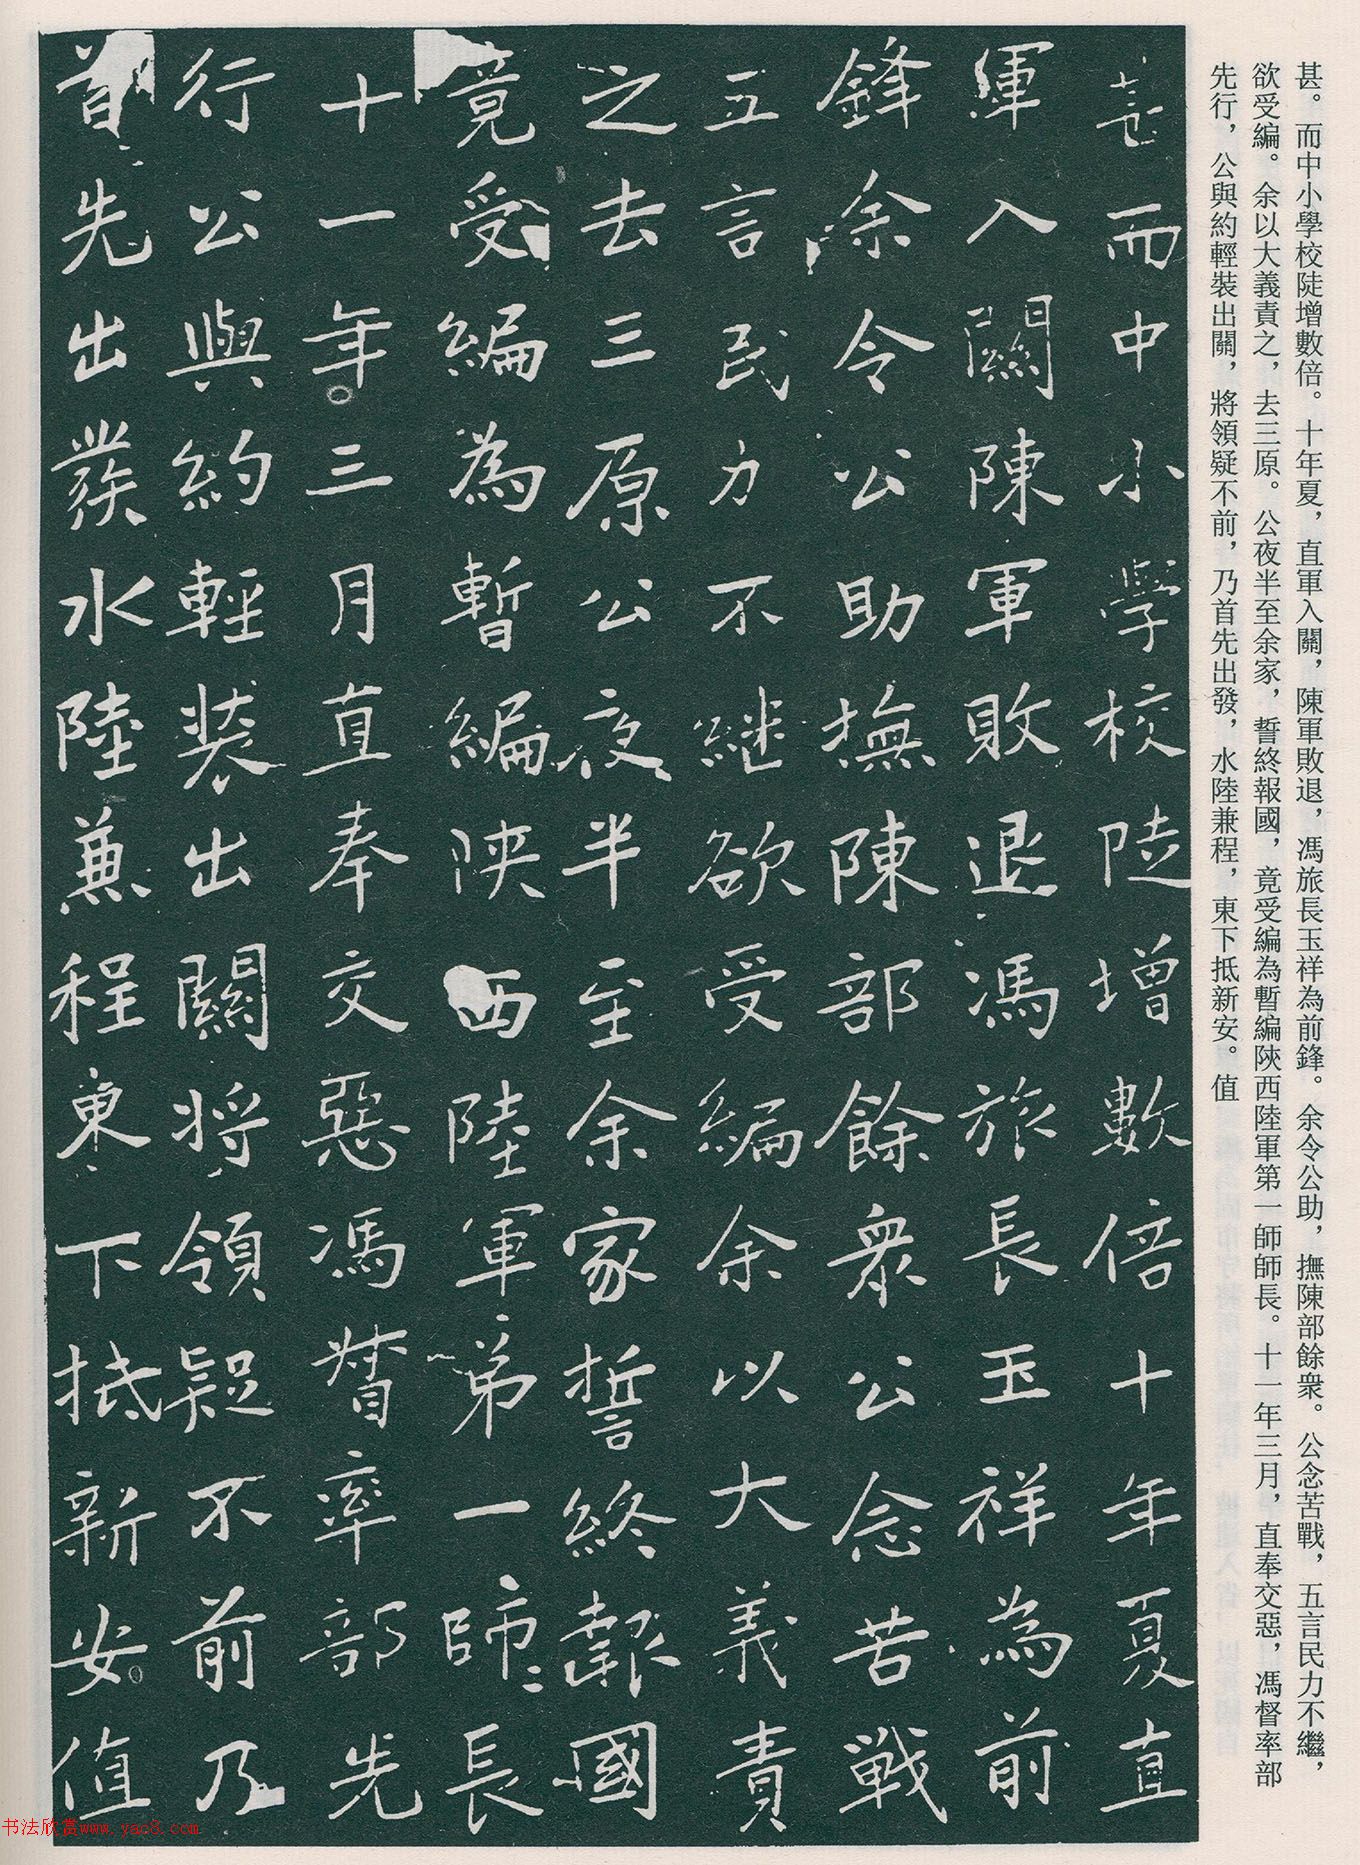 甚。而中小學校陡增數倍。十年夏，直軍入關，陳軍敗退，馮旅長玉祥為前鋒。余令公助，撫陳部餘衆。公念苦戰，五言民力不繼，
欲受編。余以大義責之，去三原。公夜半至余家，誓終報國，竟受編為暫編陝西陸軍第一師師長。十一年三月，直奉交惡，馮督率部
先行，公與約輕裝出關，將領疑不前，乃首先出發，水陸兼程，東下抵新安。值
甚而中小學校陡增數倍十年夏直
軍入關陳軍敗退馮旅長玉祥為前
鋒余令公助撫陳部餘衆公念苦戰
五言民力不継欲受編余以大義責
之去三原公夜半至余家誓終報國
竟受編為暫編陝西陸軍弟一師長
十一年三月直奉交惡馮督率部先
行公與約輕裝出關將領疑不前乃
首先出發水陸兼程東下抵新安值
书法欣赏www.yac8.com